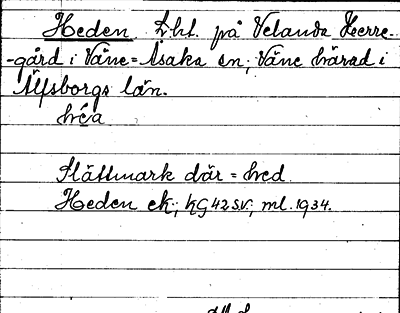 Heden Lht. på Velanda Herre-
-gård i Väne=Åsaka sn; Väne härad i
Älfsborgs län.
héa
Slättmark där = hed
Heden ek; KG 42 SV; ml. 1934.